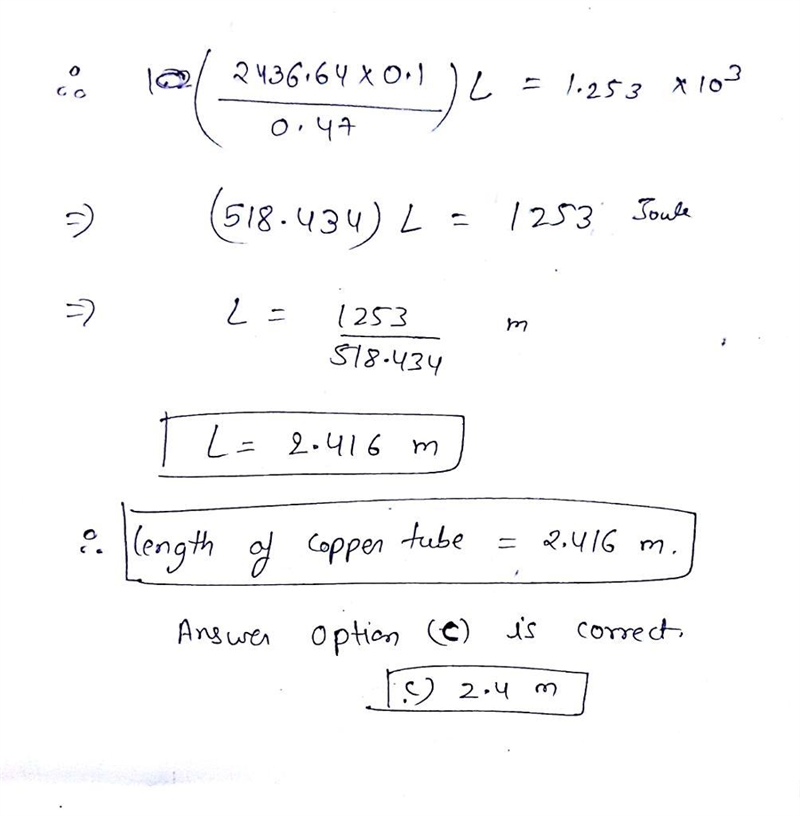 ∴ ( 2436.64 × 0.1 / 0.47 ) L = 1.253 × 10³
⇒ (518.434) L = 1253 Joule
⇒ L = 1253 / 518.434 m
L = 2.416 m
∴ length of copper tube = 2.416 m.
Answer option (C) is correct.
C) 2.4 m